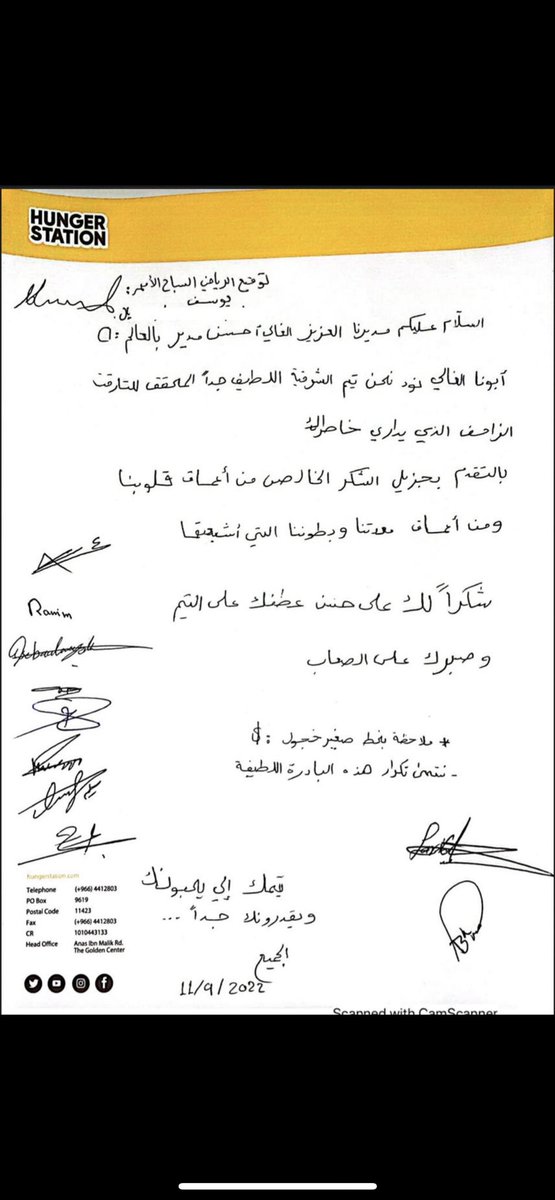 HUNGER
STATION
توقيع الرياضي السباح الأسمر:
يوسف
السلام عليكم مديرنا العزيز الغالي أحسن مدير بالعالم :D
أبونا الغالي نود نحن تيم الشرقية اللطيف جداً المحقق للتارقت
الزاحف الذي يداري خاطرك
بالتقدم بجزيل الشكر الخالص من أعماق قلوبنا
ومن أعماق معدتنا وبطوننا التي أشبعتها
شكراً لك على حسن عطفك على التيم
وصبرك على الصعاب
Raním
* ملاحظة بخط صغير خجول :$
- نتمنى تكرار هذه البادرة اللطيفة
تيمك إلي يحبونك
ويقدرونك جداً ...
الجميع
11/9/2022
hungerstation.com
Telephone (+966) 4412803
PO Box 9619
Postal Code 11423
Fax (+966) 4412803
CR 1010443133
Head Office Anas Ibn Malik Rd.
The Golden Center
Scanned with CamScanner